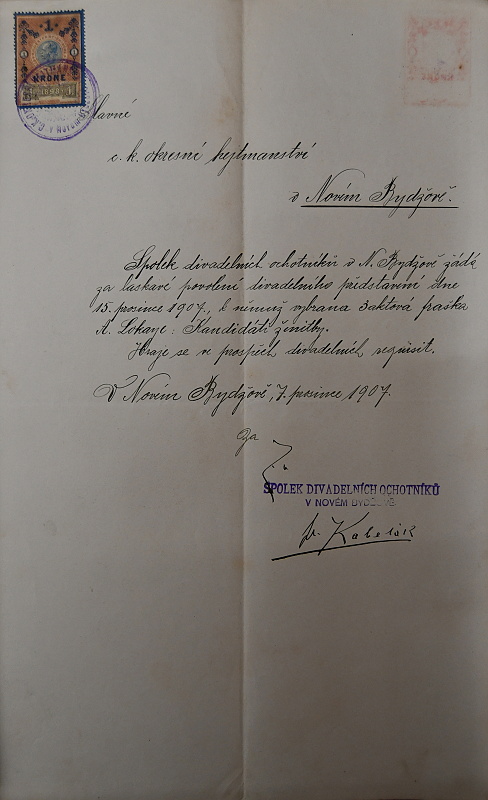 1
KRONE
Slavné
c. k. okresní hejtmanství
v Novém Bydžově.
Spolek divadelních ochotníků v N. Bydžově žádá
za laskavé povolení divadelního představení dne
15. prosince 1907, k němuž vybrána 3aktová fraška
A. Lokaye: Kandidáti ženitby.
Hraje se ve prospěch divadelních requisit.
V Novém Bydžově, 7. prosince 1907.
Za
SPOLEK DIVADELNÍCH OCHOTNÍKŮ
V NOVÉM BYDŽOVĚ